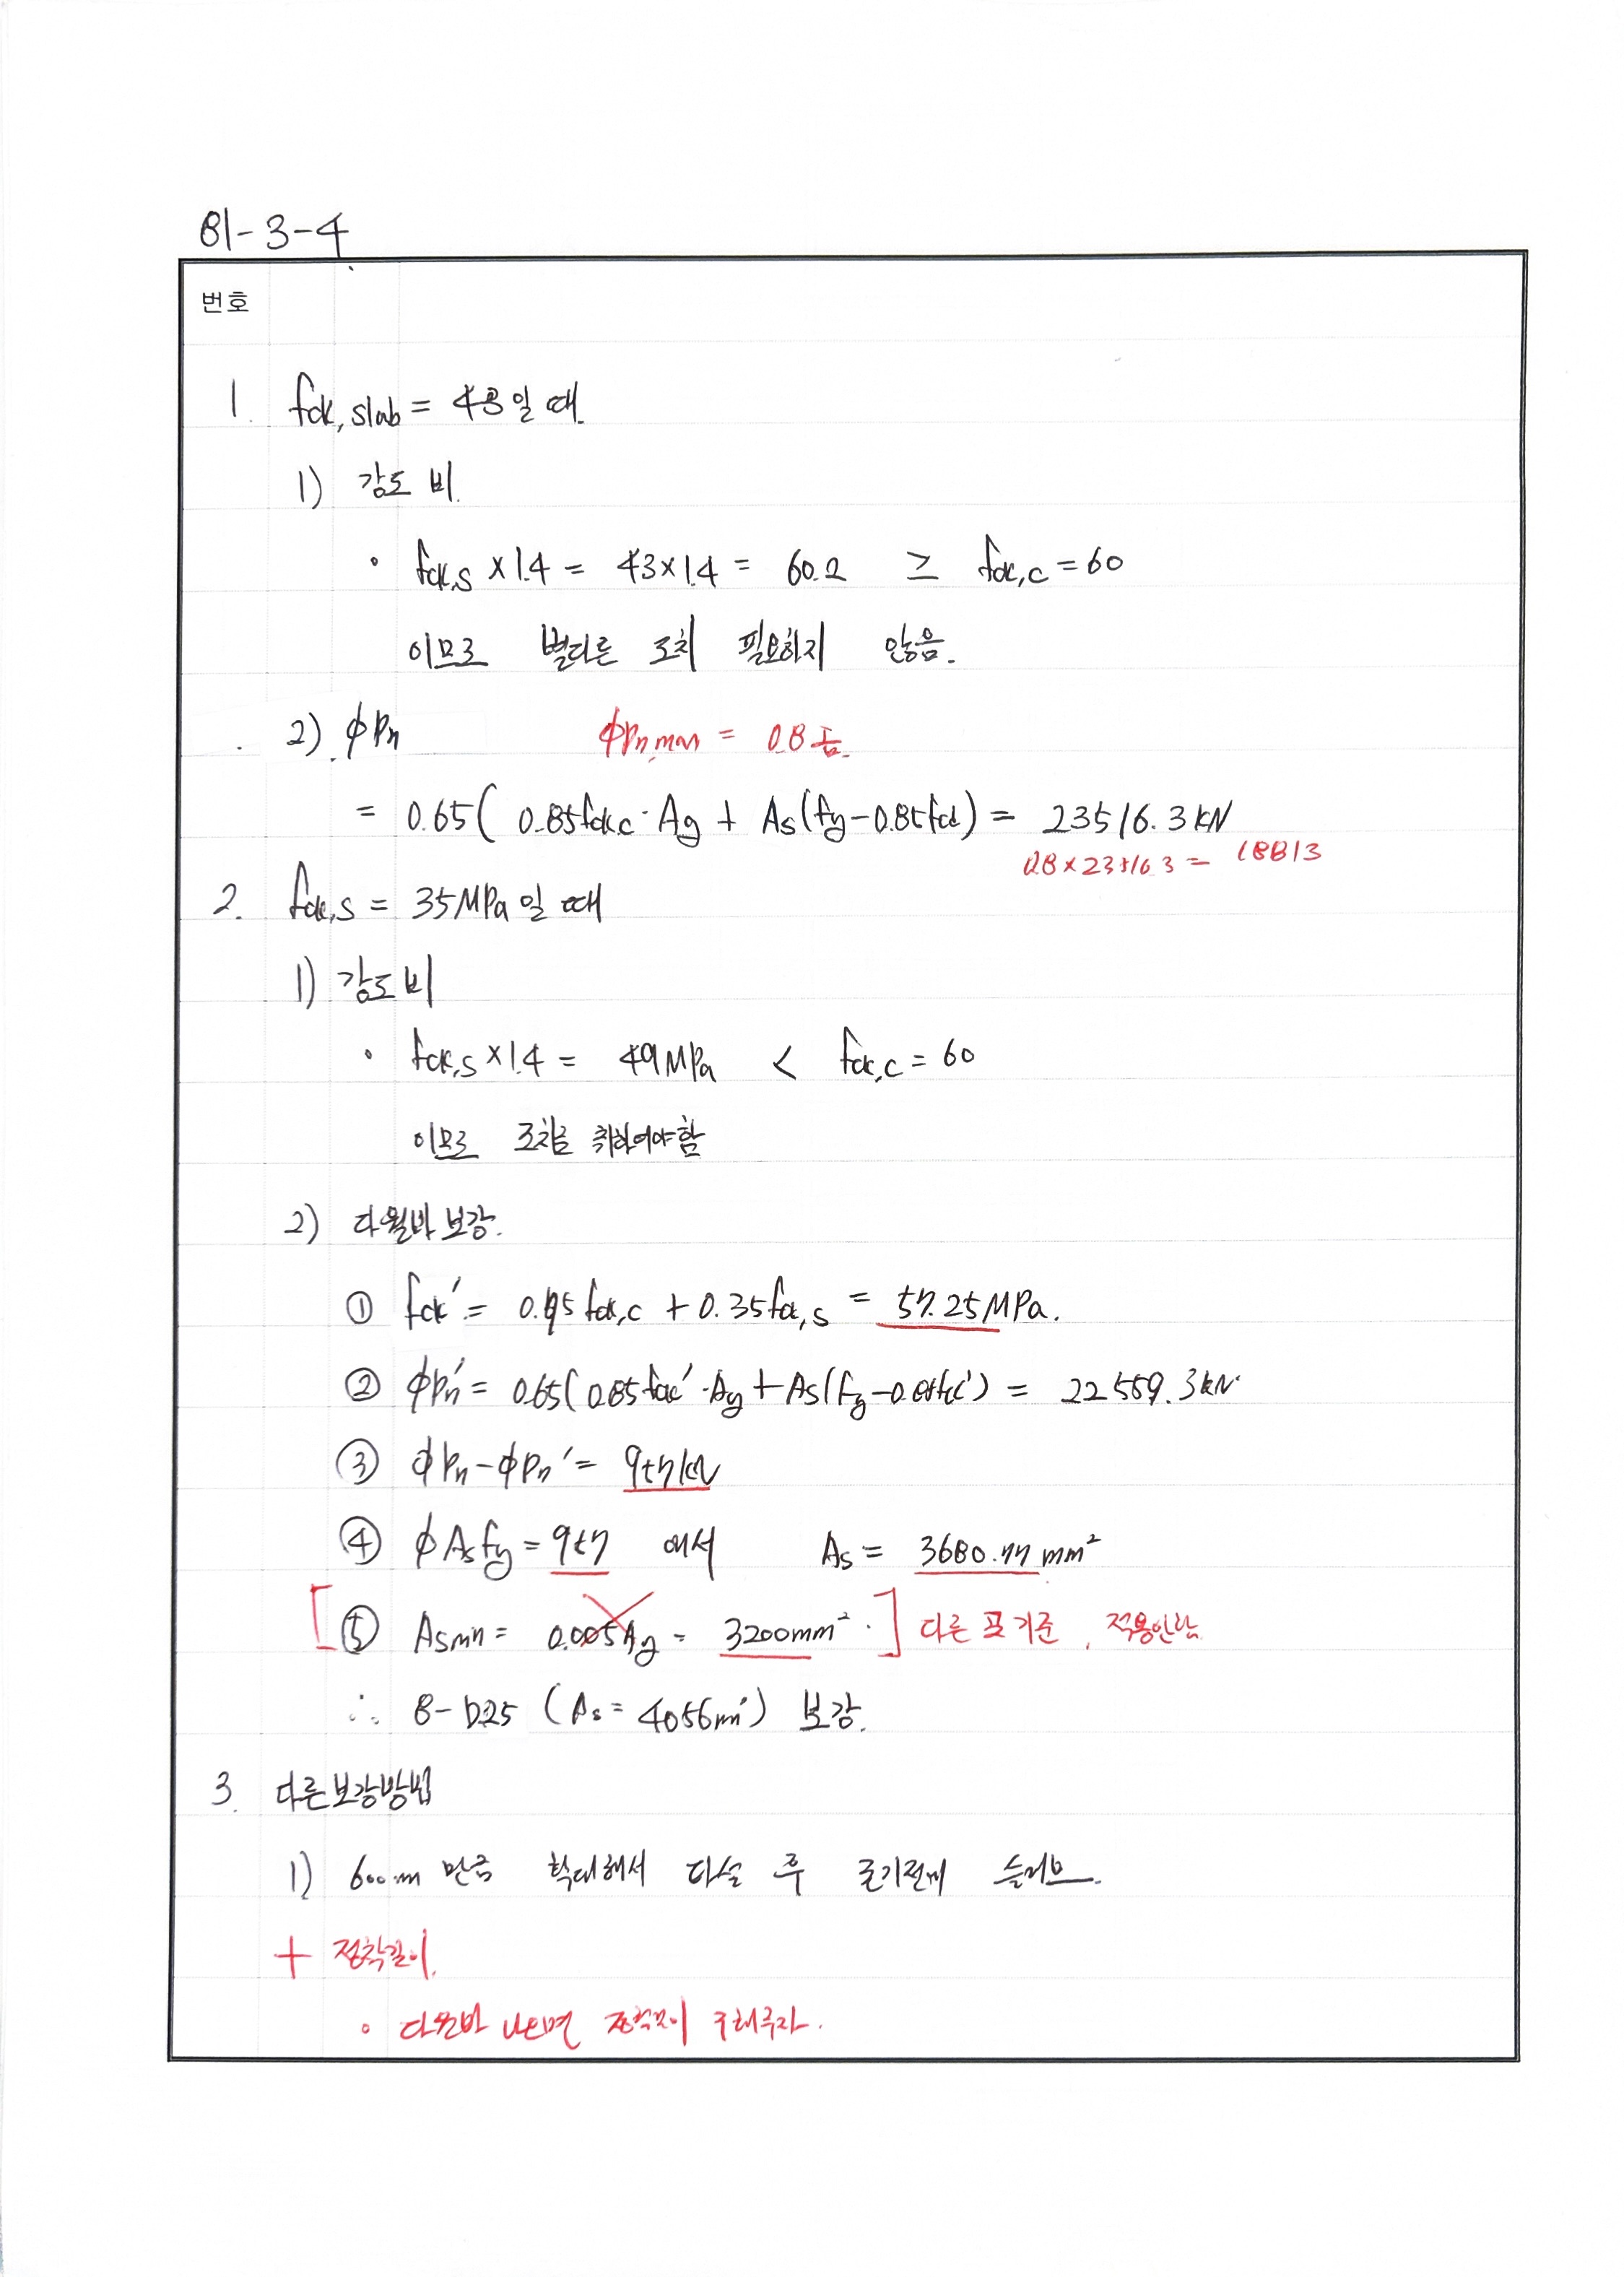 81-3-4
번호
1. fck,slab = 43일 때
1) 강도 비.
• fck,s ×1.4 = 43×1.4 = 60.2 ≥ fck,c = 60
이므로 별다른 조치 필요하지 않음.
2) ϕPn ϕPn,max = 0.8 등
= 0.65( 0.85fck,c·Ag + As(fy-0.85fck) = 23516.3 kN
0.8 × 23516.3 = 18813
2. fck,s = 35MPa 일 때
1) 강도 비
• fck,s ×1.4 = 49MPa < fck,c = 60
이므로 조치를 취하여야 함
2) 다월바 보강.
① fck' = 0.75 fck,c + 0.35 fck,s = 57.25MPa.
② ϕPn' = 0.65( 0.85 fck'·Ag + As(fy-0.85fck') = 22559.3kN
③ ϕPn-ϕPn' = 957kN
④ ϕAsfy = 957 에서 As = 3680.77 mm²
[⑤ Asmin = 0.005Ag = 3200mm².] 다른 표기준, 적용안함
∴ 8-D25 (As = 4056㎟) 보강.
3. 다른보강방법
1) 600mm 만큼 확대해서 타설 후 굳기전에 슬래브.
+ 정착길이.
• 다월바 나오면 정착길이 구해주자.